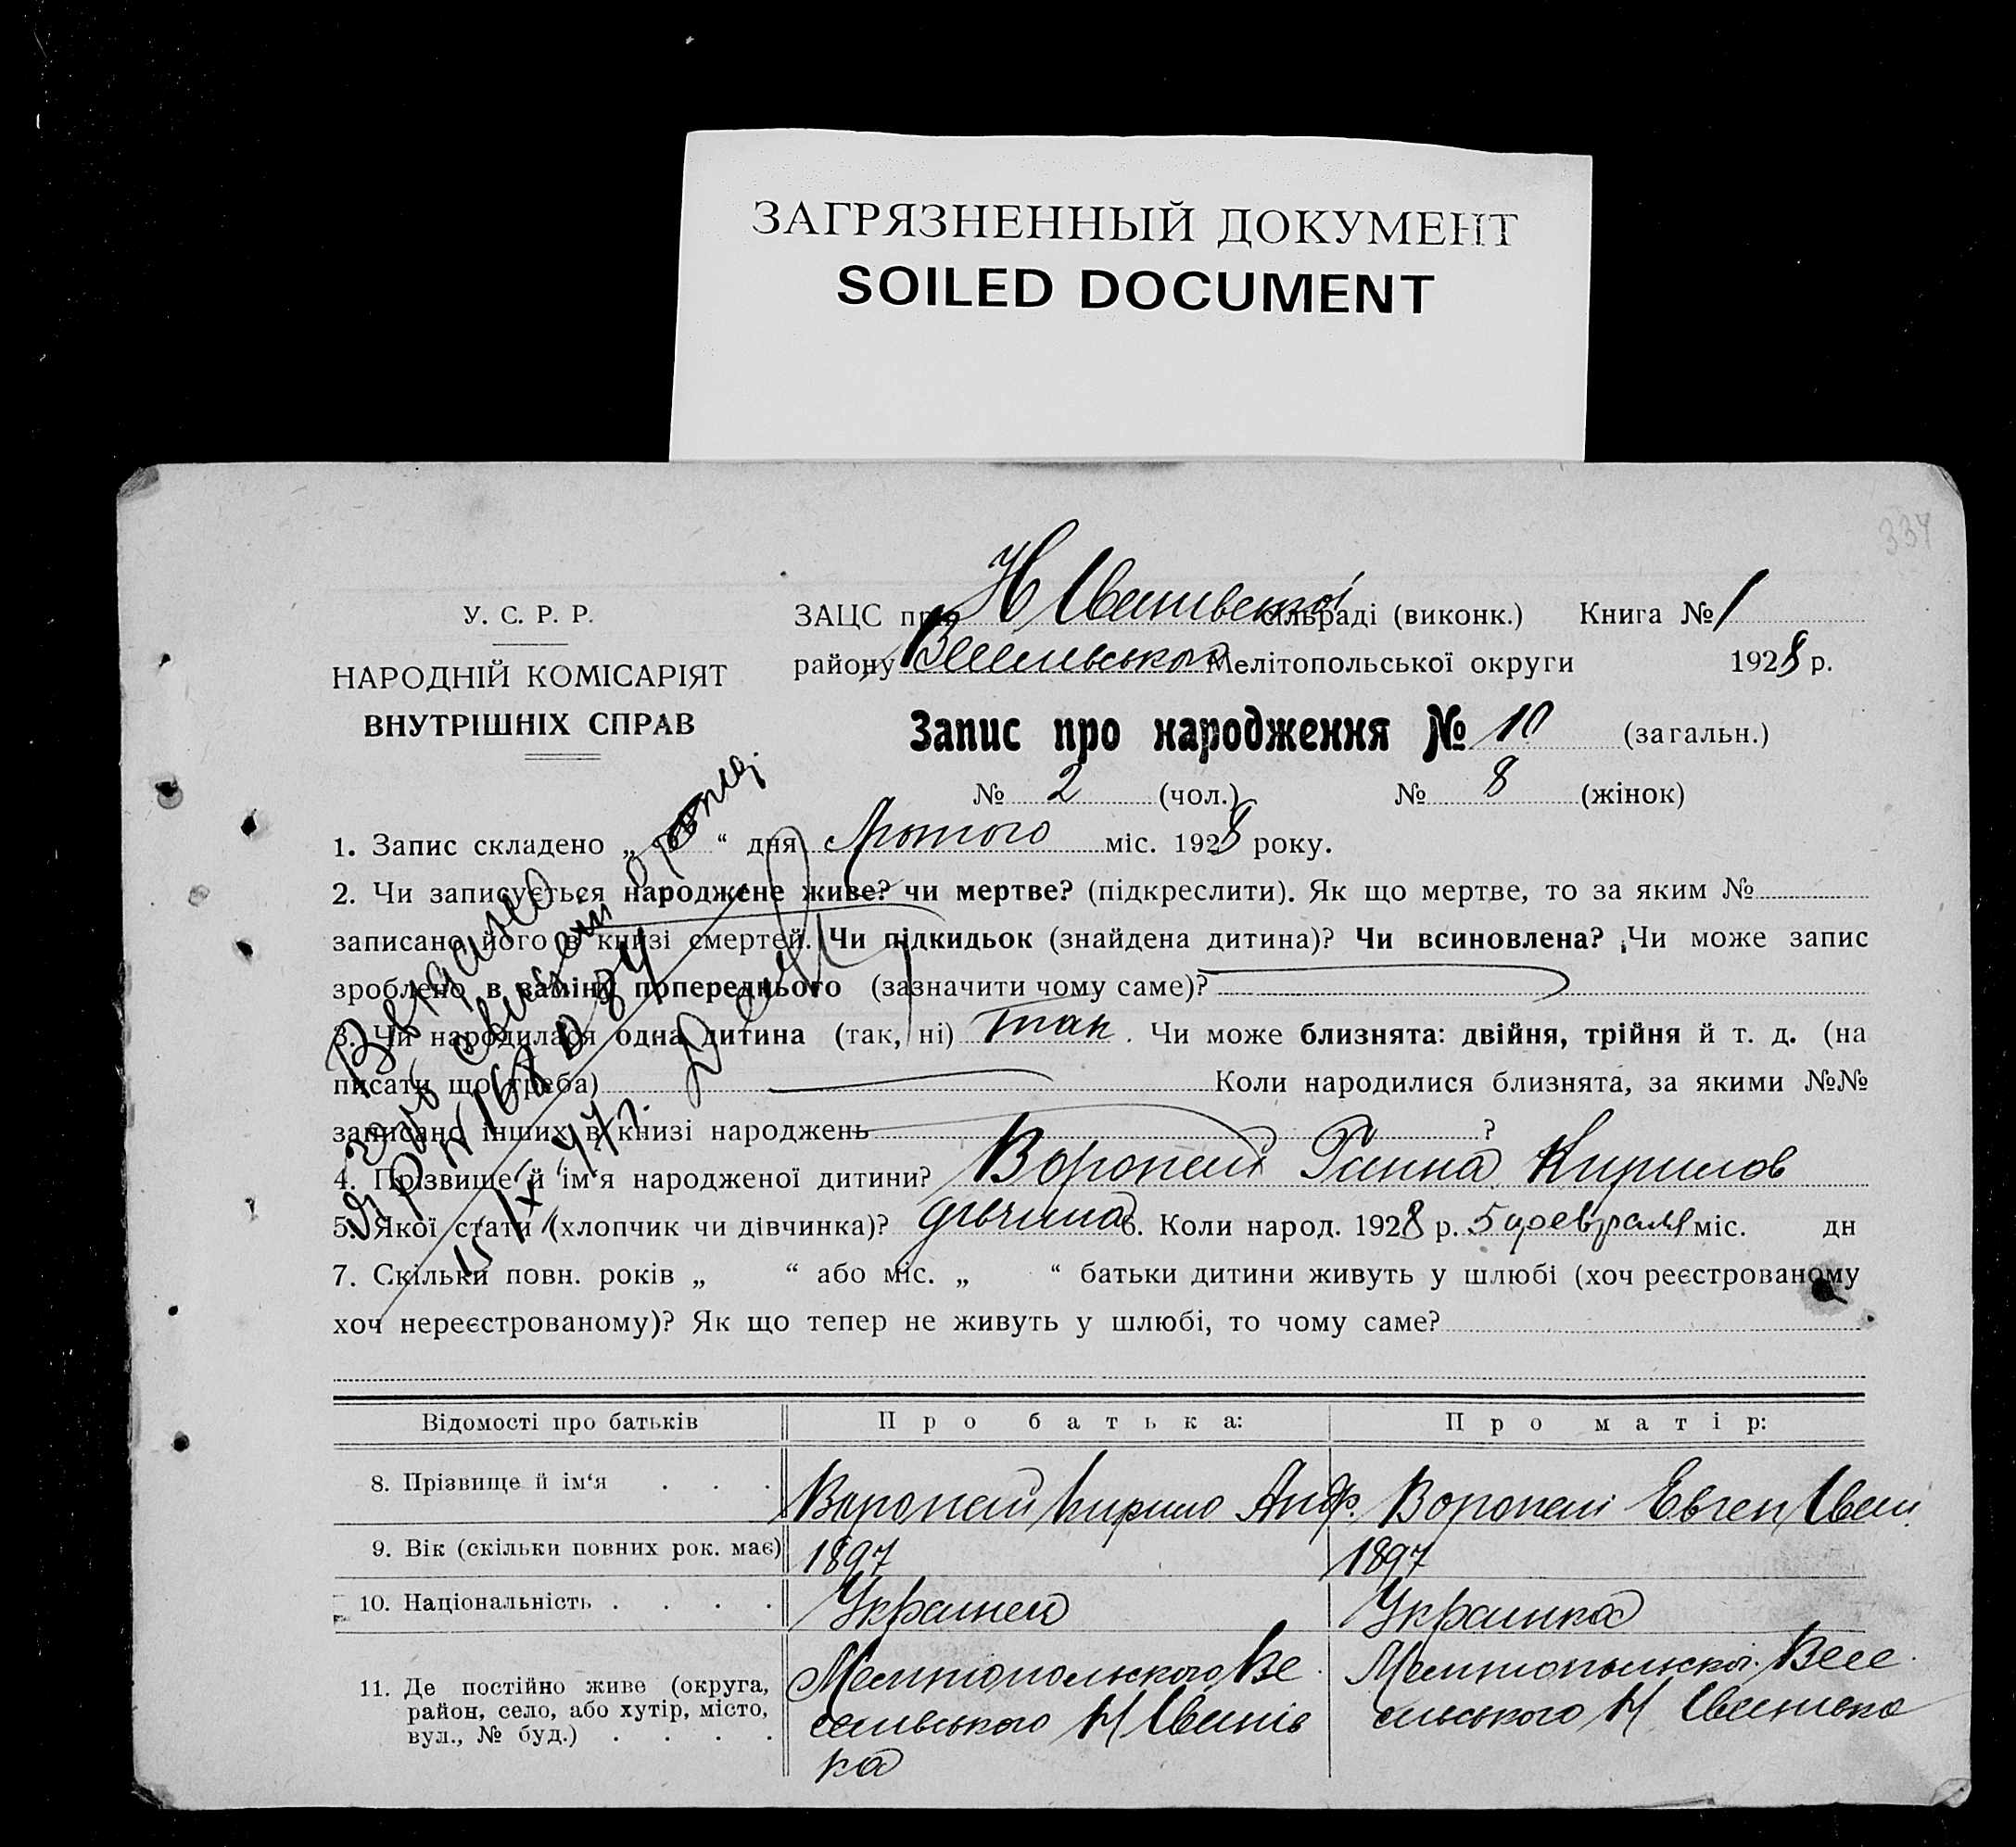 ЗАГРЯЗНЕННЫЙ ДОКУМЕНТ
SOILED DOCUMENT
337
У. С. Р. Р.
НАРОДНІЙ КОМІСАРІЯТ
ВНУТРІШНІХ СПРАВ
ЗАЦС при Н Іванівській сільраді (виконк.) Книга № 1
району Веселівського Мелітопольської округи 1928 р.
Запис про народження № 10 (загальн.)
№ 2 (чол.) № 8 (жінок)
1. Запис складено „ “ дня Лютого міс. 1928 року.
2. Чи записується народжене живе? чи мертве? (підкреслити). Як що мертве, то за яким №
записано його в книзі смертей. Чи підкидьок (знайдена дитина)? Чи всиновлена? Чи може запис
зроблено в заміну попереднього (зазначити чому саме)?
3. Чи народилася одна дитина (так, ні) так. Чи може близнята: двійня, трійня й т. д. (на
писати що треба) Коли народилися близнята, за якими №№
записано інших в книзі народжень ?
4. Прізвище й ім'я народженої дитини? Воропай Ганна Кирилов
5. Якої стати (хлопчик чи дівчинка)? дівчина 6. Коли народ. 1928 р. 5 февраля міс. дн
7. Скільки повн. років „ “ або міс. „ “ батьки дитини живуть у шлюбі (хоч реєстрованому
хоч нереєстрованому)? Як що тепер не живуть у шлюбі, то чому саме?
Відомості про батьків Про батька: Про матір:
8. Прізвище й ім‘я . . . Воропай Кирило Анф. Воропай Евген Іван
9. Вік (скільки повних рок. має) 1897 1897
10. Національність . . . . Українец Украинка
11. Де постійно живе (округа, район, село, або хутір, місто, вул., № буд.) . . . .
Мелитопольского Ве
селивського Н Іванів
ка
Мелитопольскої Весе
Н Іванивка